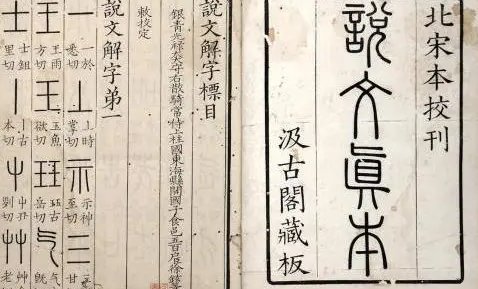 北宋本挍刊
說文眞本
汲古閣藏板
說文解字標目
銀青光祿大夫守右散騎常侍上柱國東海縣開國子食邑五百戶徐鉉等
敕挍定
說文解字第一
一 一於悉切 丄 上時掌切 示 示神至切 三 甘
王 王雨方切 玉 玉魚欲切 玨 玨古岳切 气 气旣
士 士鉏里切 丨 丨古本切 屮 屮丑切 艸 老